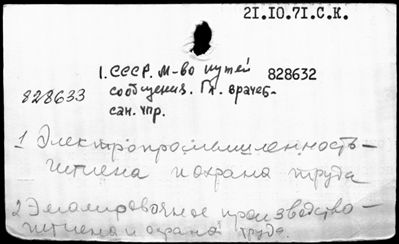 21.10.71.С.К.
1. СССР. М-во путей 828632
828633 сообщения. Гл. врачеб-
сан. упр.
1 Электропромышленность –
гигиена и охрана труда
2 Эмалировочное производство –
гигиена и охрана труда.